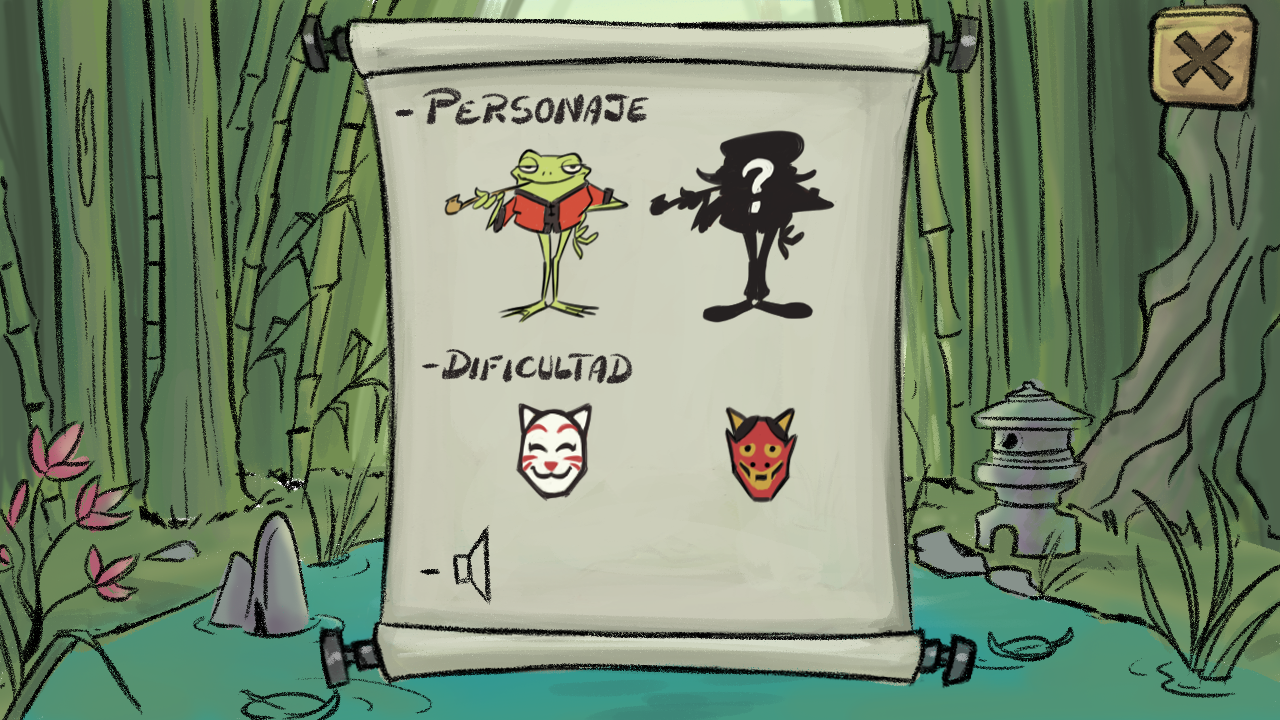 - PERSONAJE
?
- DIFICULTAD
-